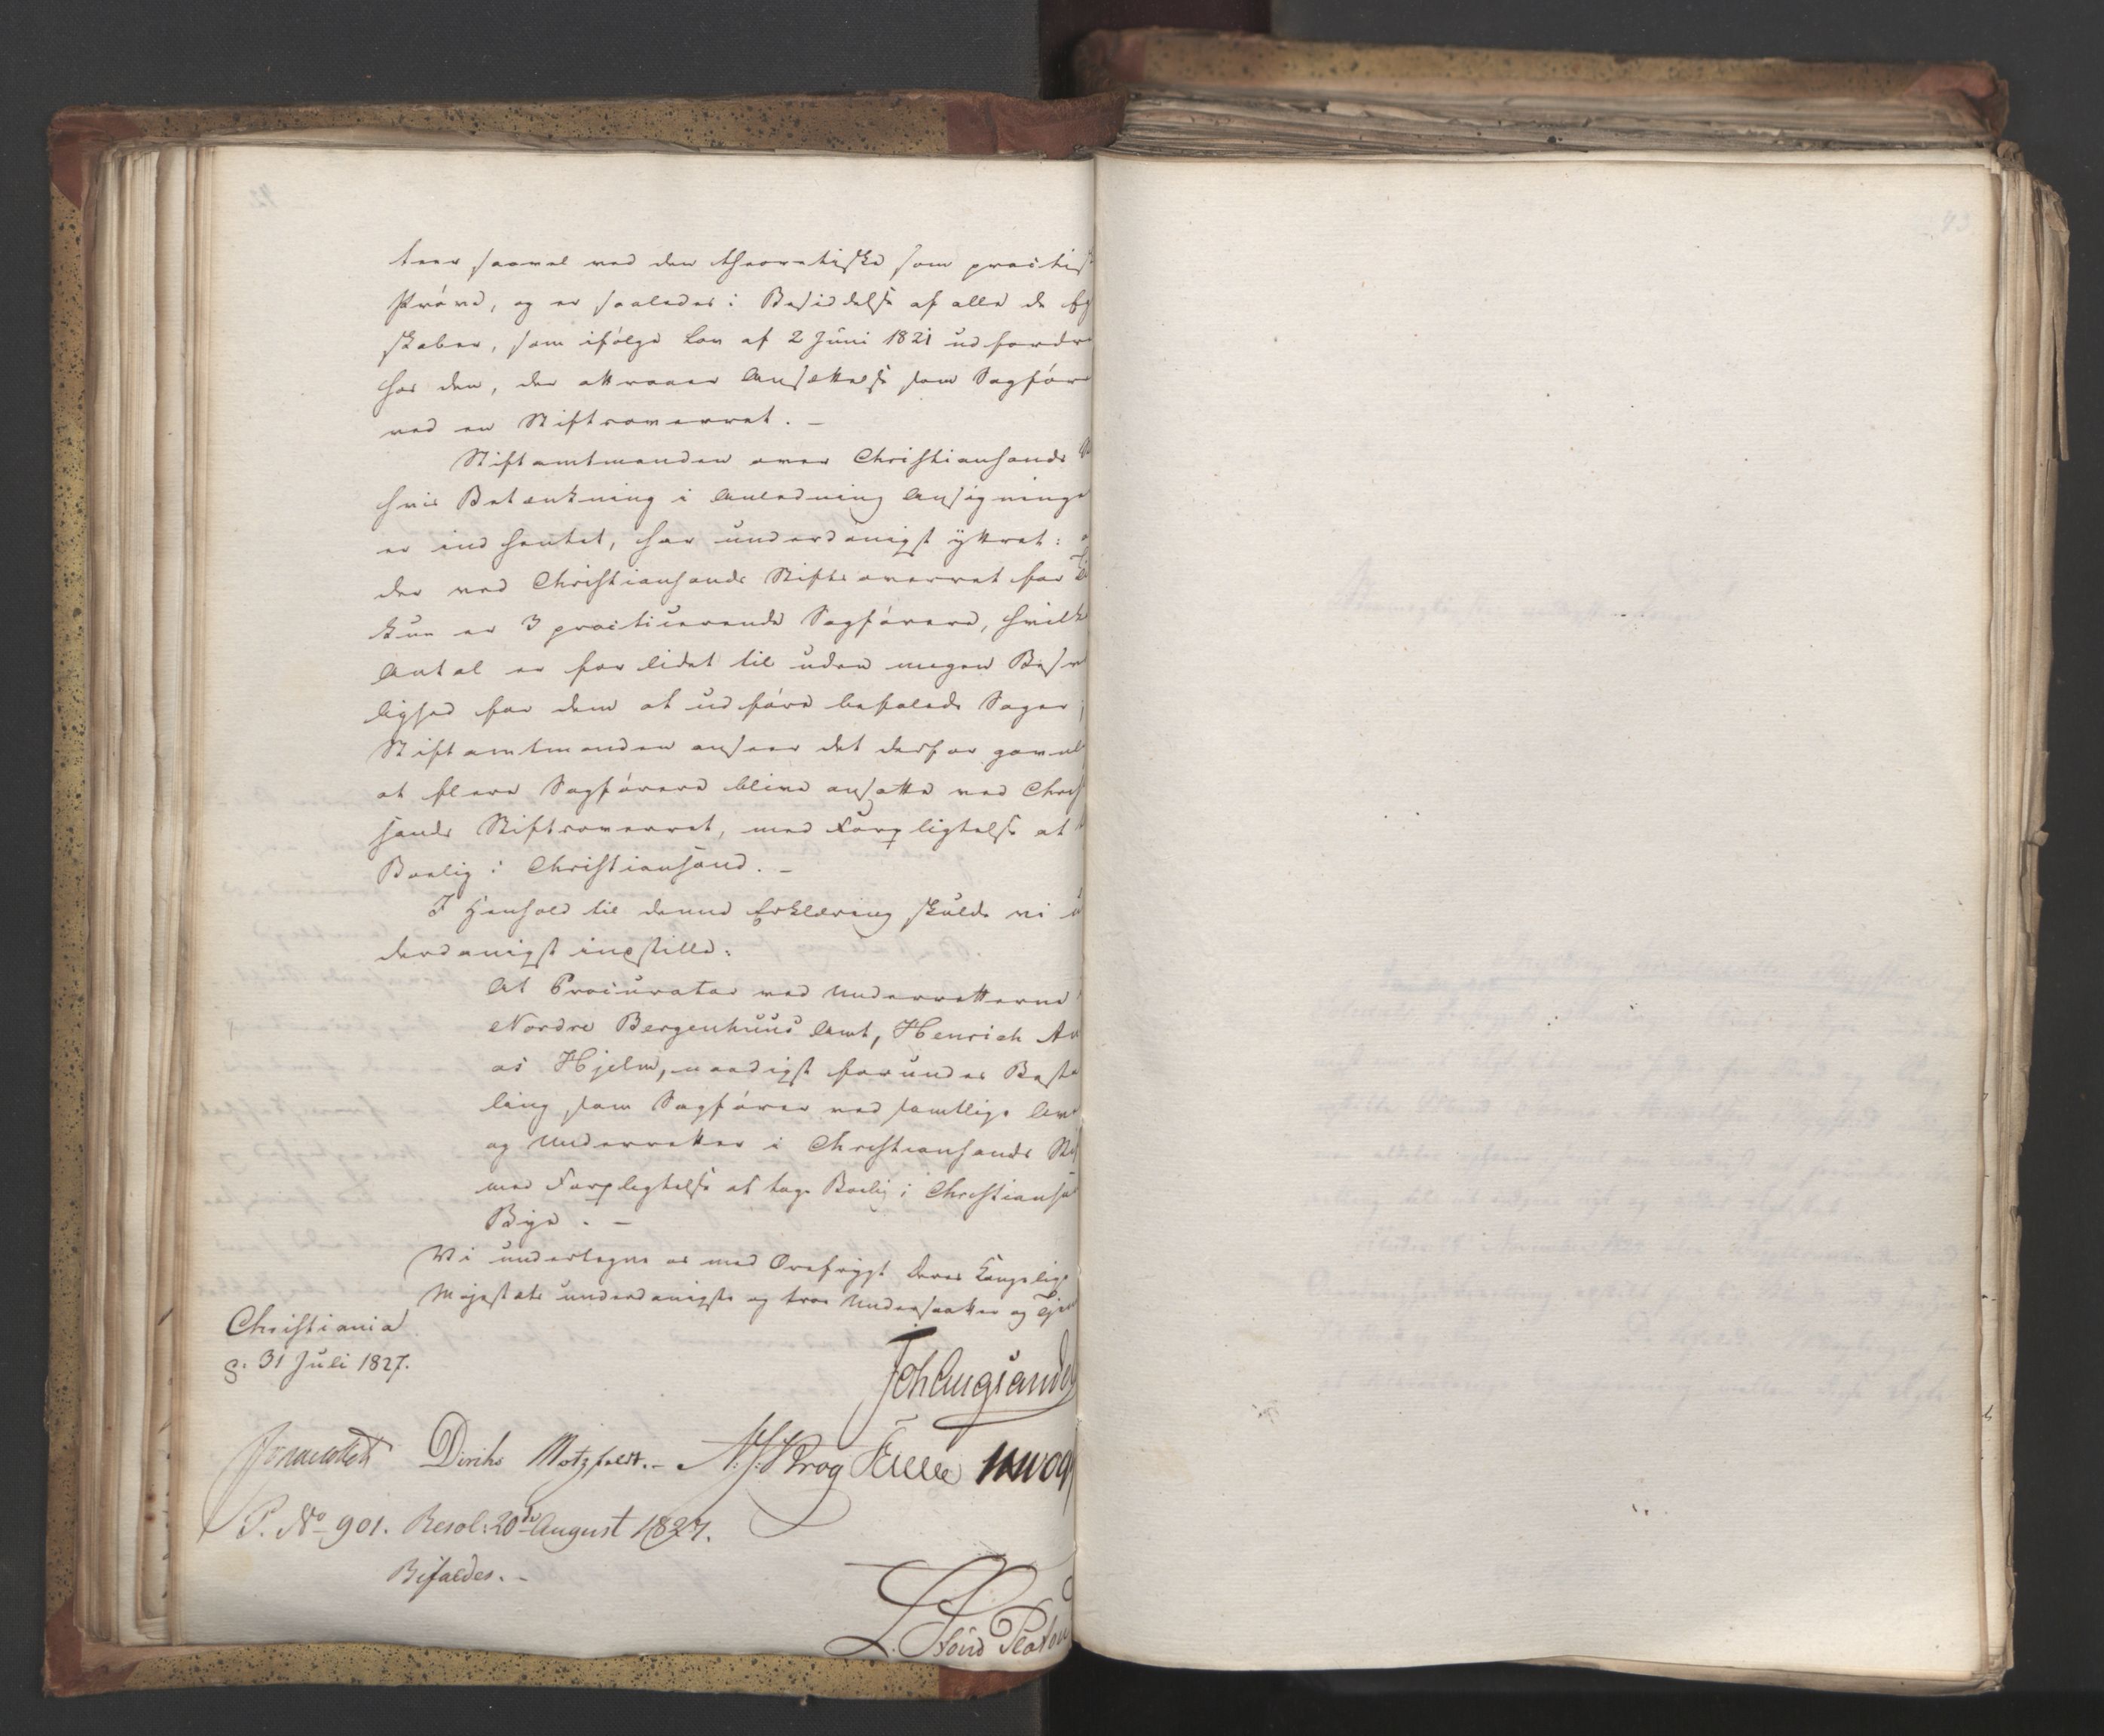 teer saavel ved den theoretiske som practis
Prøve, og er saaledes i Besiddelse af alle de Eg
skaber, som ifølge Lov af 2 Juni 1821 udfordre
hos den, der attraaer Ansættelse som Sagføre
ved en Stiftsoverret. –
Stiftamtmanden over Christiansands
hvis Betænkning i Anledning Ansøgninge
er indhentet, har underdanigst yttret:
der ved Christiansands Stifts overret for
kun er 3 practiserende Sagførere, hvilk
Antal er for lidet til uden megen Besv
lighed for dem at udføre befalede Sager;
Stiftamtmanden anseer det derfor gavnl
at flere Sagførere blive ansatte ved Christ
sands Stiftsoverret, med Forpligtelse at
Boelig i Christiansand. –
I Henhold til denne Erklæring skulde vi u
derdanigst indstille:
At Procurator ved Underretterne
Nordre Bergenhuus Amt, Henrich An
as Hjelm, naadigst forundes Besta
ling som Sagfører ved samtlige
og Underretter i Christiansands Stif
med Forpligtelse at tage Boelig i Christiansa
Bye. –
Vi undertegne os med Ærefrygt Deres Kongelige
Majestæts underdanigste og troe Undersaatter og Tjen
Christiania
d. 31 Juli 1827.
Joh Aug Sande
Diriks Motzfeldt. – Krog
P. No 901. Resol: 20de August 1827.
Bifaldes. –
L. Stoud Platou
92
93